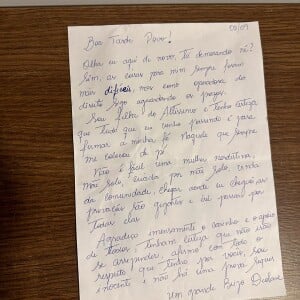 09/09
Boa Tarde Povo!
Olha eu aqui de novo, tô demorando né?
Sim, as coisas para mim sempre foram
mais difíceis mas como operadora do
direito sigo aguardando os prazos.
Sou filha do Altíssimo e tenho certeza
que tudo que eu tenha passando é para
firmar a minha fé naquele que sempre
me colocou de pé.
Não é fácil uma mulher nordestina,
mãe solo, criada por mãe solo, vinda
da comunidade, chegar onde eu cheguei as
provações são gigantes e irei passar por
todas elas.
Agradeço imensamente o carinho e o apoio
de todos, tenham certeza que não irão
se arrepender, afirmo com todo o
respeito que tenho por vocês, sou
inocente e não há uma prova sequer
Um grande Beijo Deolane